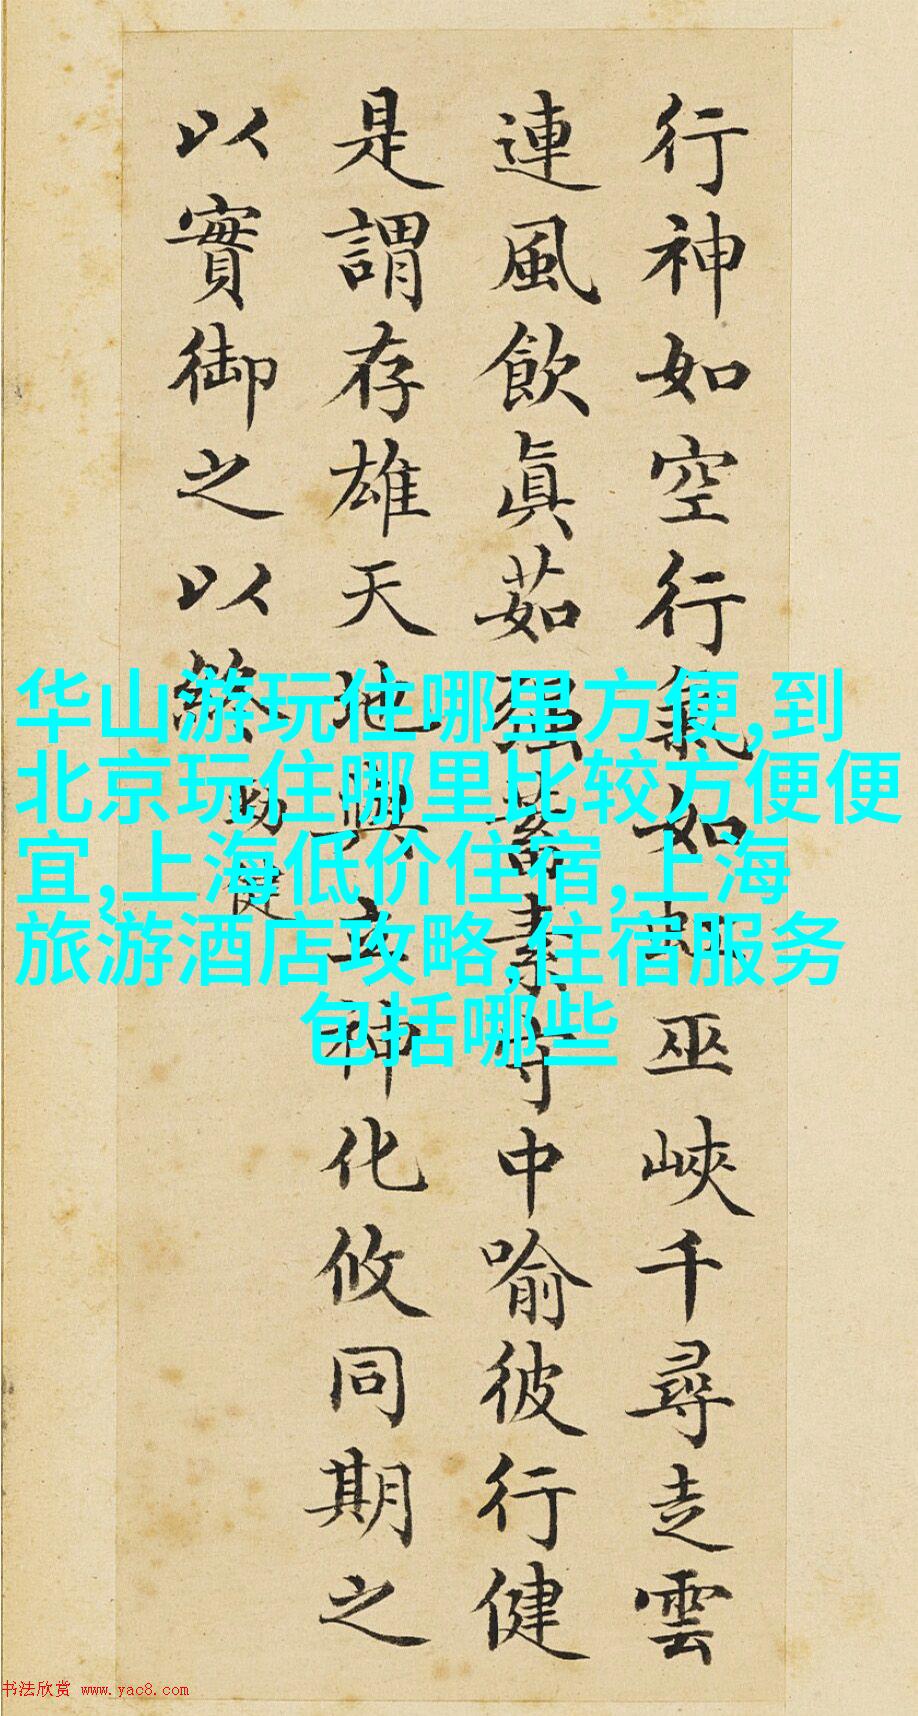 行神如空行氣如虹巫峽千尋走雲
連風飲眞茹强蓄素守中喻彼行健
是謂存雄天地與立神化攸同期之
以實御之以終
勁健
华山游玩住哪里方便,到
北京玩住哪里比较方便便
宜,上海低价住宿,上海
旅游酒店攻略,住宿服务
包括哪些
书法欣赏 www.yac8.com